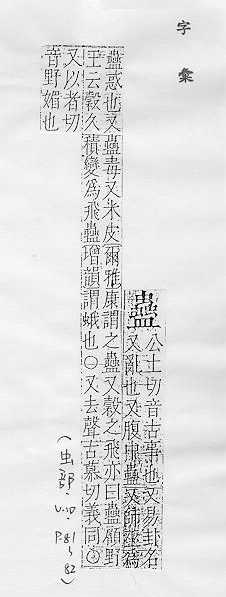 字彙
蠱
公土切音古事也又易卦名
又亂也又腹康蠱又師經為
蠱惑也又蠱毒又米皮爾雅康謂之蠱又穀之飛亦曰蠱顧野
王云穀久積變為飛蠱增韻謂蛾也○又去聲古慕切義同○
又以者切
音野媚也
(虫部· P.81~82)